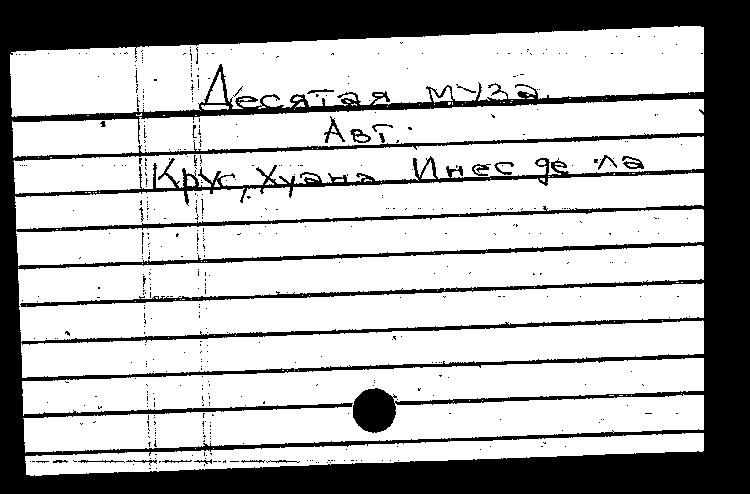 Десятая муза.
Авт.:
Крус, Хуана Инес де ла